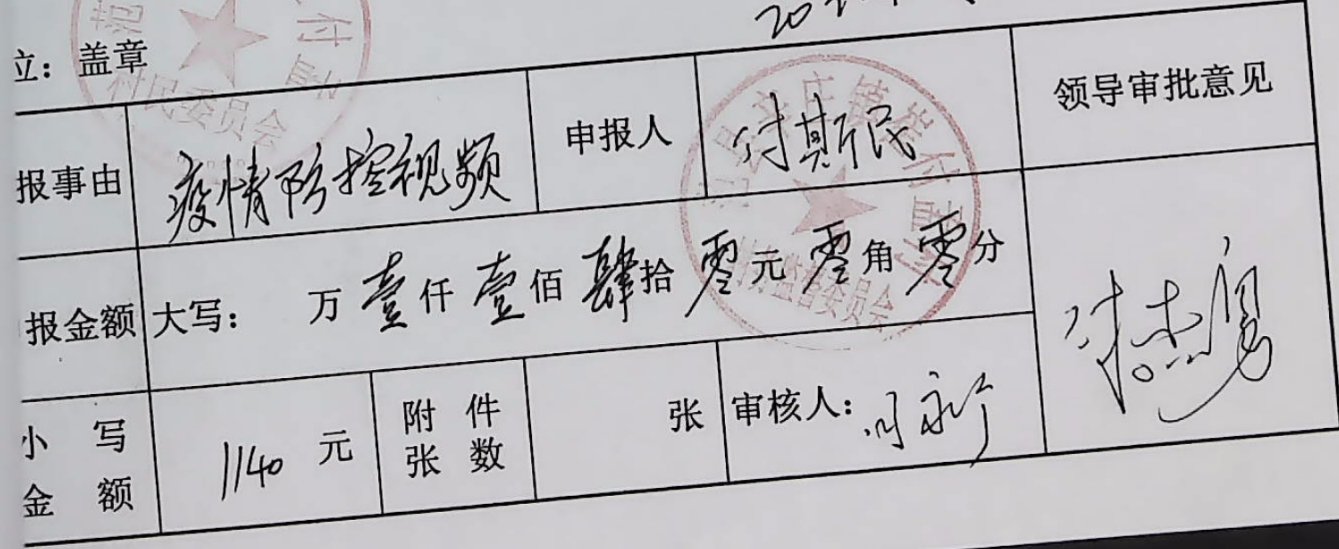 立：盖章
村民委员会
报事由 疫情防控视频 申报人 付其民 领导审批意见
报金额 大写： 万壹仟壹佰肆拾零元零角零分
小写金额 1140元 附件张数 张 审核人：